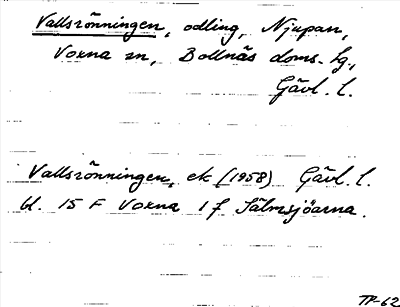 Vallsrönningen, odling, Njupan,
Voxna sn, Bollnäs doms. hg,
Gävl. l.
Vallsrönningen, ek (1958) Gävl. l.
bl. 15 F Voxna 1 f Sälmsjöarna.
TP-62